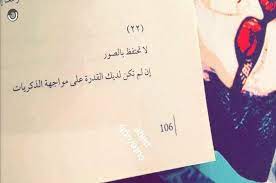 (٢٢)
لا تحتفظ بالصور
إن لم تكن لديك القدرة على مواجهة الذكريات
106